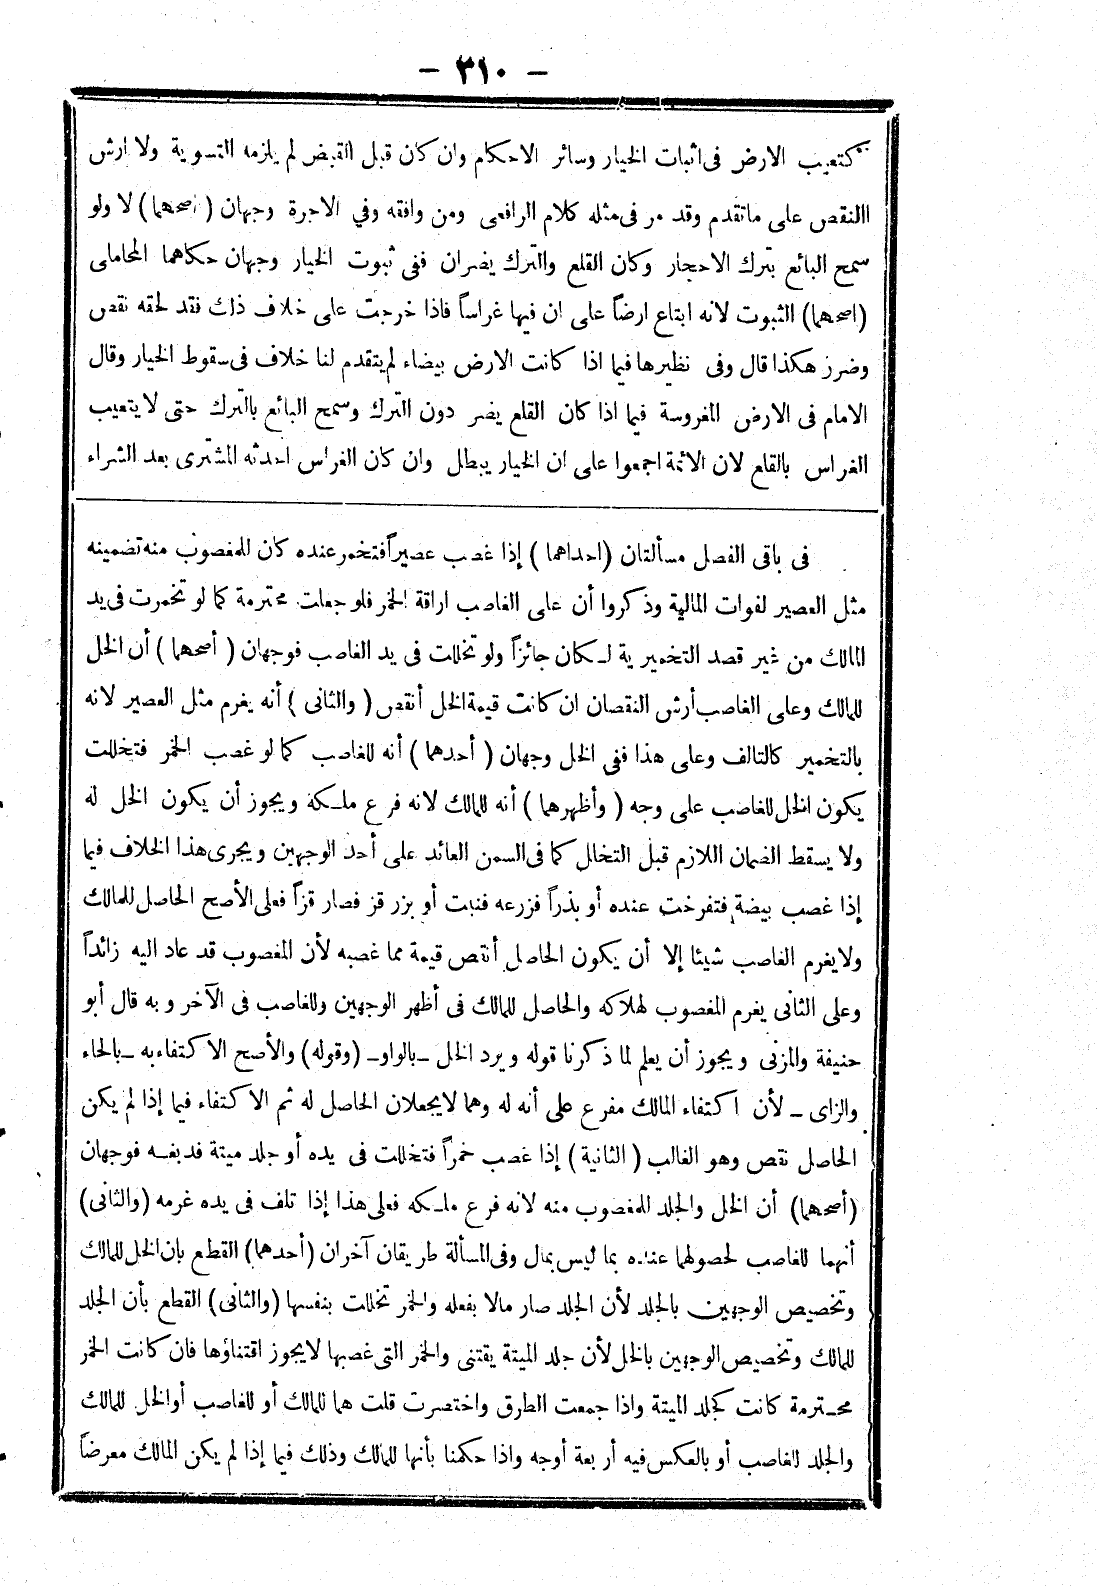 - ٣١٠ -
كتعيب الارض فى اثبات الخيار وسائر الاحكام وان كان قبل القبض لم يلزمه التسوية ولا ارش
االنقص على ماتقدم وقد مر فى مثله كلام الرافعى ومن وافقه وفي الاجرة وجهان ( اصحهما ) لا ولو
سمح البائع بترك الاحجار وكان القلع والترك يضران ففى ثبوت الخيار وجهان حكاهما المحاملى
(اصحهما) الثبوت لانه ابتاع ارضاً على ان فيها غراساً فاذا خرجت على خلاف ذلك فقد لحقه نقص
وضرر هكذا قال وفى نظيرها فيما اذا كانت الارض بيضاء لم يتقدم لنا خلاف فى سقوط الخيار وقال
الامام فى الارض المغروسة فيما اذا كان القلع يضر دون الترك وسمح البائع بالترك حتى لا يتعيب
الغراس بالقلع لان الائمة اجمعوا على ان الخيار يبطل وان كان الغراس احدثه المشترى بعد الشراء
فى باقى الفصل مسألتان (احداهما ) إذا غصب عصيراً فتخمر عنده كان للمغصوب منه تضمينه
مثل العصير لفوات المالية وذكروا أن على الغاصب اراقة الخمر فلو جعلت محترمة كما لو تخمرت فى يد
المالك من غير قصد الخمرية لكان جائزاً ولو تخللت فى يد الغاصب فوجهان ( أصحهما ) أن الخل
للمالك وعلى الغاصب أرش النقصان ان كانت قيمة الخل أنقص ( والثانى ) أنه يغرم مثل العصير لانه
بالتخمير كالتالف وعلى هذا ففى الخل وجهان ( أحدهما ) أنه للغاصب كما لو غصب الخمر فتخللت
يكون الخل للغاصب على وجه ( وأظهرهما ) أنه للمالك لانه فرع ملكه ويجوز أن يكون الخل له
ولا يسقط الضمان اللازم قبل التخلل كما فى السمن العائد على أحد الوجهين ويجرى هذا الخلاف فيما
إذا غصب بيضة فتفرخت عنده أو بذراً فزرعه فنبت أو بزر قز فصار قزاً فعلى الأصح الحاصل للمالك
ولايغرم الغاصب شيئا إلا أن يكون الحاصل أنقص قيمة مما غصبه لأن المغصوب قد عاد اليه زائداً
وعلى الثانى يغرم المغصوب لهلاكه والحاصل للمالك فى أظهر الوجهين وللغاصب فى الآخر وبه قال أبو
حنيفة والمزنى ويجوز أن يعلم لما ذكرنا قوله ويرد الخل ــ بالواو ــ (وقوله) والأصح الاكتفاء به ــ بالحاء
والزاى ــ لأن اكتفاء المالك مفرع على أنه له وهما لايجعلان الحاصل له ثم الاكتفاء فيما إذا لم يكن
الحاصل نقص وهو الغالب ( الثانية ) إذا غصب خمراً فتخللت فى يده أو جلد ميتة فدبغه فوجهان
(أصحهما) أن الخل والجلد للمغصوب منه لانه فرع ملكه فعلى هذا إذا تلف فى يده غرمه (والثانى)
أنهما للغاصب لحصولهما عنده بما ليس بمال وفى المسألة طريقان آخران (أحدهما) القطع بان الخل للمالك
وتخصيص الوجهين بالجلد لأن الجلد صار مالا بفعله والخمر تخللت بنفسها (والثانى) القطع بأن الجلد
للمالك وتخصيص الوجهين بالخل لأن جلد الميتة يقتنى والخمر التى غصبها لايجوز اقتناؤها فان كانت الخمر
محترمة كانت كجلد الميتة واذا جمعت الطرق واختصرت قلت هما للمالك أو للغاصب أو الخل للمالك
والجلد للغاصب أو بالعكس فيه أربعة أوجه واذا حكمنا بأنها للمالك وذلك فيما إذا لم يكن المالك معرضاً